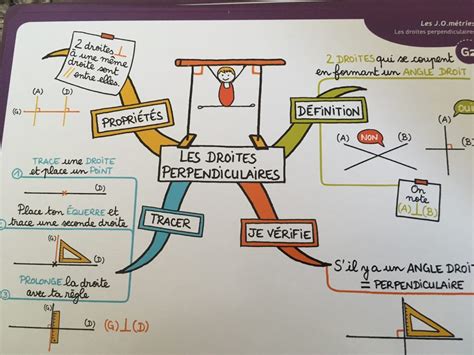 Les J.O.métries
Les droites perpendiculaires
G
2 droites ⊥
à une même
droite sont
// entre elles.
PROPRIÉTÉS
2 DROITES qui se coupent
en formant un ANGLE DROIT
DÉFINITION
OUI
(A) NON (B)
(A)
(B)
On
note
(A)⊥(B)
LES DROITES
PERPENDICULAIRES
1 TRACE une DROITE
et place un POINT
(D)
Place ton ÉQUERRE et
trace une seconde droite
(D)
3 PROLONGE la droite
avec ta règle
(G) (D) (G)⊥(D)
TRACER
JE VÉRIFIE
S'il y a un ANGLE DROIT
= PERPENDICULAIRE